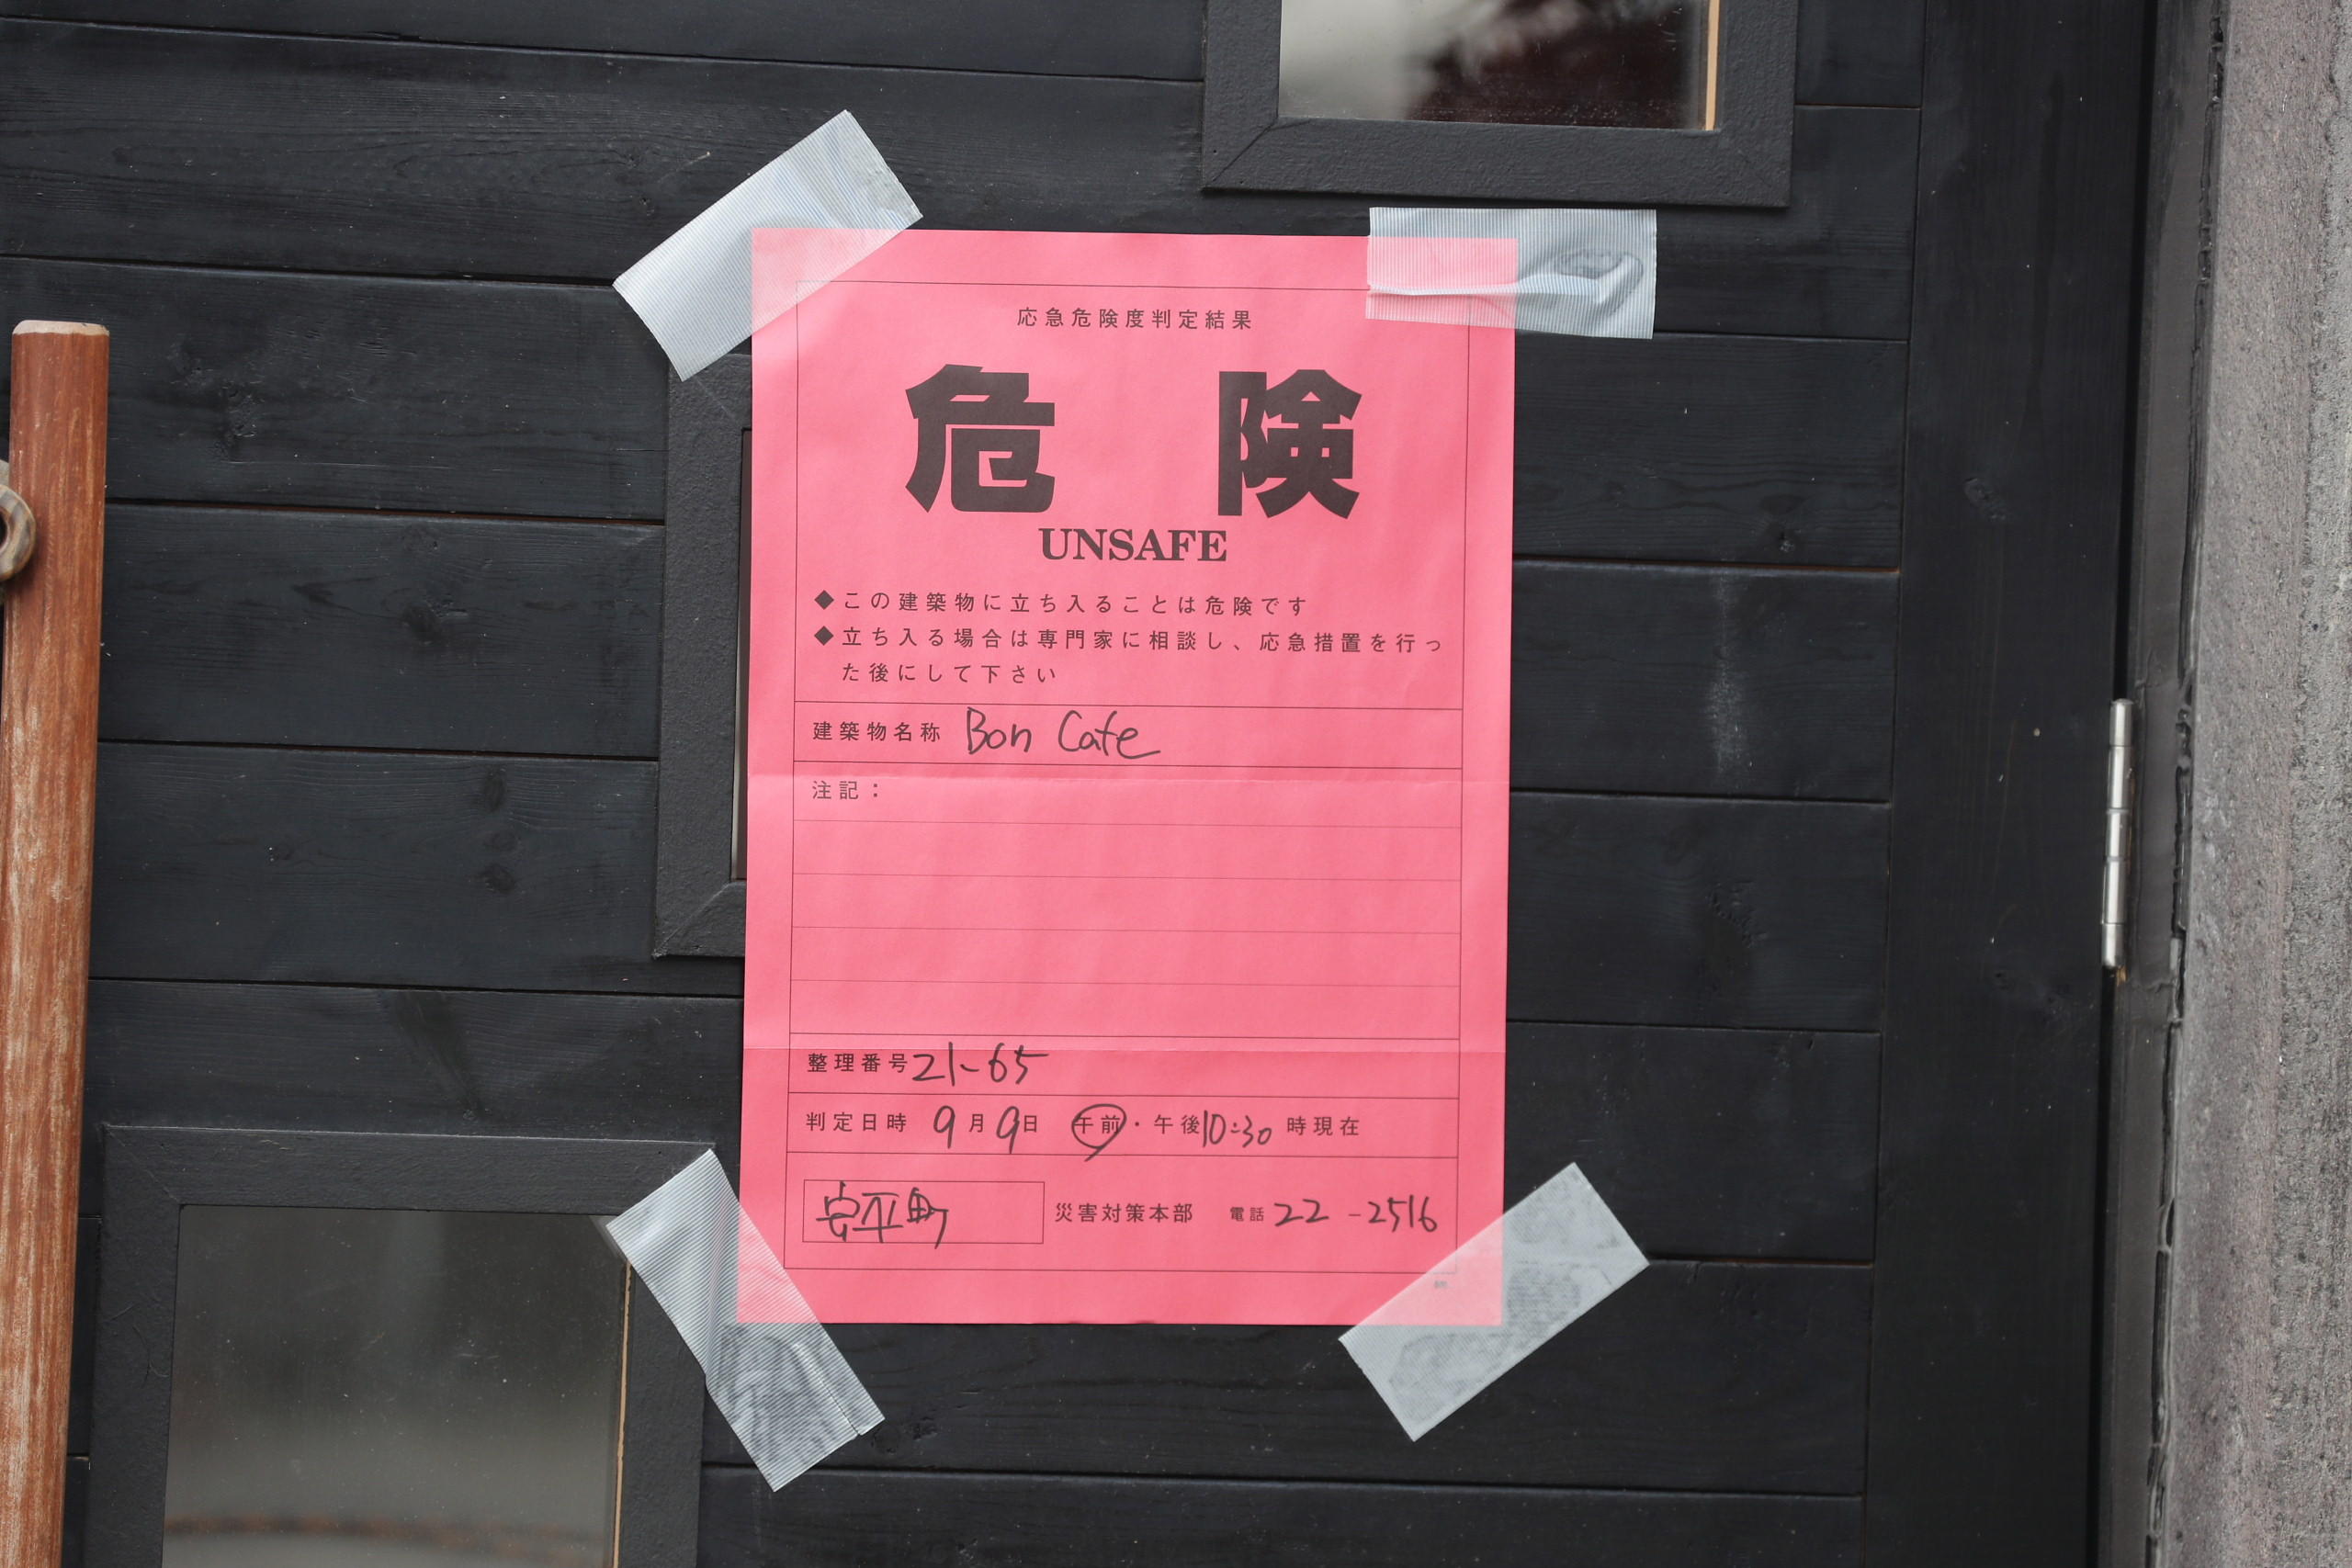 応急危険度判定結果
危 険
UNSAFE
◆この建築物に立ち入ることは危険です
◆立ち入る場合は専門家に相談し、応急措置を行っ
た後にして下さい
建築物名称 Bon Cafe
注記：
整理番号 21-65
判定日時 9月9日 午前・午後 10:30 時現在
安平町 災害対策本部 電話 22-2516